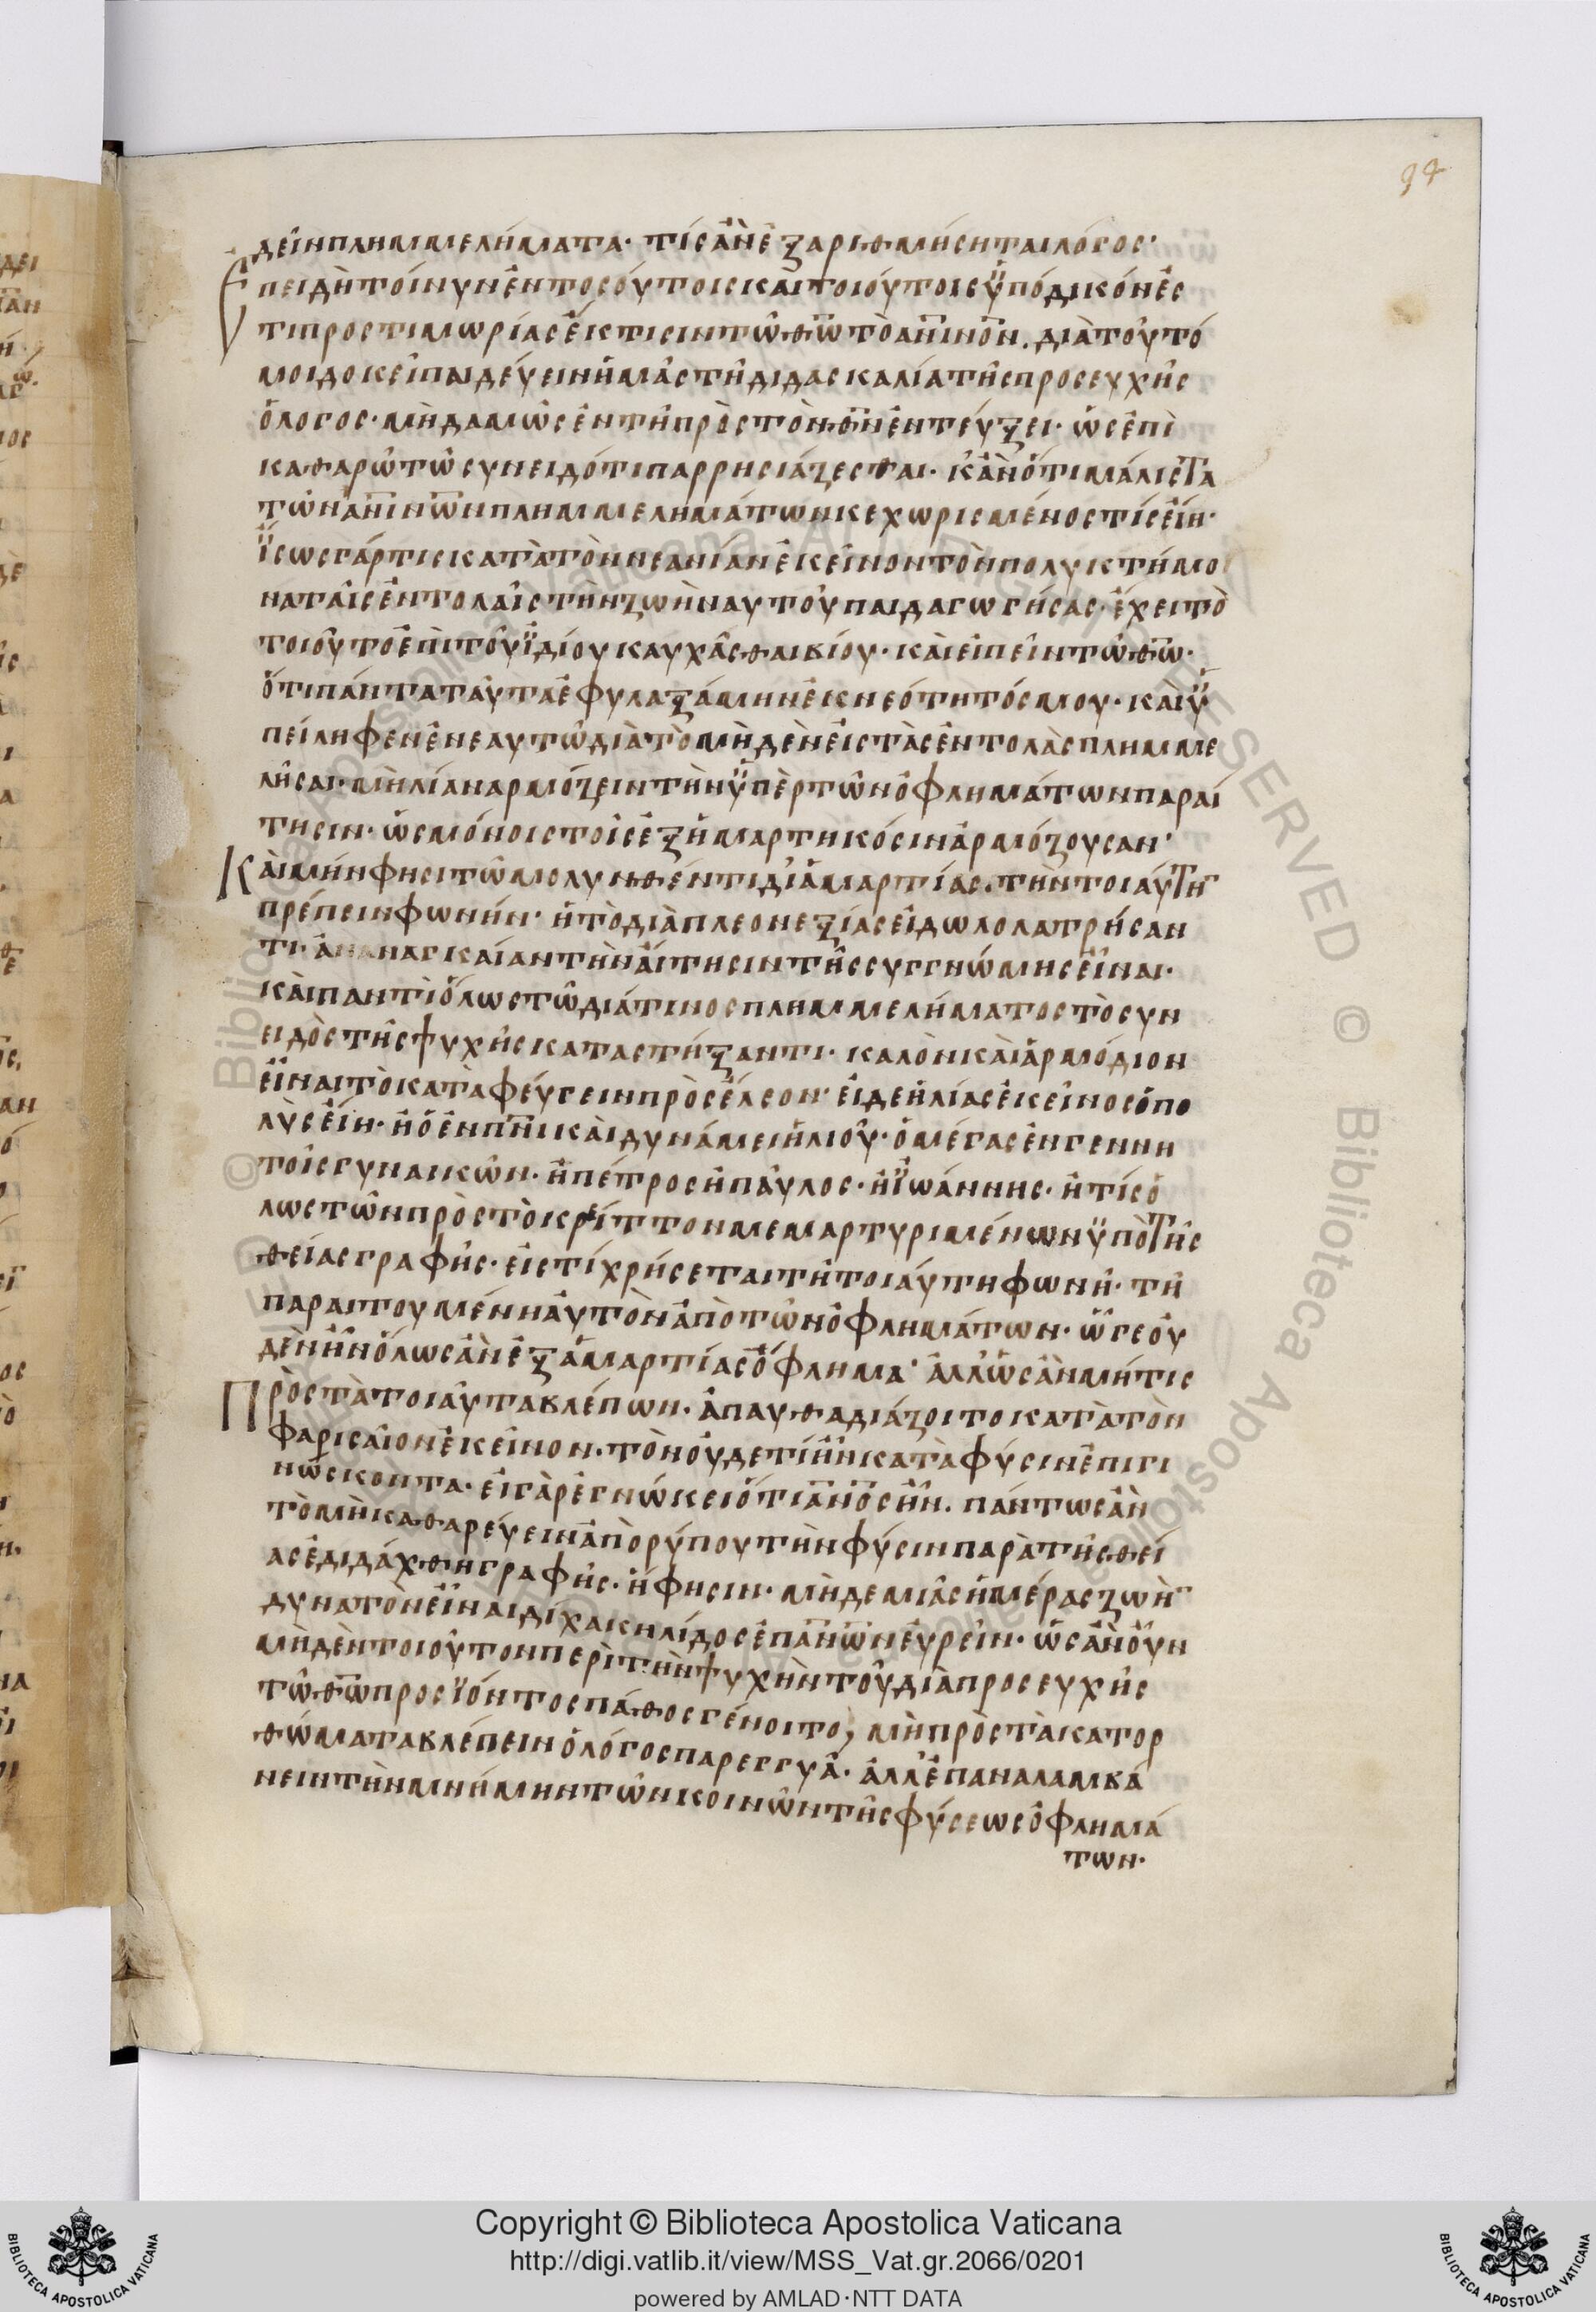 94
δεῖν πλημμελήματα· τίς ἂν ἐξαριθμήσηται λόγος·
Ἐπειδὴ τοίνυν ἐν τοσούτοις καὶ τοιούτοις ὑπόδικόν ἐσ
τι προς τιμωρίας ἔκτισιν τῶ θ̅ω̅ τὸ ἀν̅ιν̅ον. διὰ τοῦτό
μοι δοκεῖ παιδεύειν ἡμᾶς τῆ διδασκαλία τῆς προσευχῆς
ὁ λόγος· μὴδαμῶς ἐν τῆ πρὸς τὸν θ̅ν̅ ἐντεύξει· ὡς ἐπὶ
καθαρῶ τῶ συνειδότι παρρησιάζεσθαι· κἂν ὅτι μάλιστα
τῶν ἀν̅ιν̅ων πλημμελημάτων κεχωρισμένος τίς εἴη·
ἴσως γάρ τις κατὰ τὸν νεανίαν ἐκεῖνον τὸν πολυκτήμο
να ταῖς ἐντολαῖς τὴν ζωὴν αυτοῦ παιδαγωγήσας· ἔχει τὸ
τοιοῦτο ἐπὶ τοῦ ϊδίου καυχᾶσθαι βίου· καὶ εἰπεῖν τῶ θ̅ω̅·
ὅτι πάντα ταῦτα ἐφυλαξάμην ἐκ νεότητός μου· καὶ ὑ
πείληφεν ἐν εαυτῶ διὰ τὸ μὴδὲν εἰς τὰς ἐντολὰς πλημμε
λῆσαι· μὴ λίαν αρμόζειν τὴν ὑπὲρ τῶν ὀφλημάτων παραί
τησιν· ὡς μόνοις τοῖς ἐξημαρτηκόσιν ἁρμόζουσαν·
Καὶ μήν φησι τῶ μολυνθέντι δι' ἁμαρτίας· τὴν τοιαύτη̅
πρέπειν φωνήν· ἢ τὸ διὰ πλεονεξίας εἰδωλολατρήσαν
τι· ἀναγκαίαν τὴν αἴτησιν τῆς συγγνώμης εἶναι·
καὶ παντὶ ὅλως τῶ διά τινος πλημμελήματος τὸ συν
ειδὸς τῆς ψυχῆς καταστήξαντι· καλὸν καὶ ἁρμόδιον
εἶναι τὸ καταφεύγειν πρὸς ἔλεον· εἰ δε ἠλίας ἐκεῖνος ὁ πο
λὺς εἴη· ἢ ὁ ἐν πν̅ι καὶ δυνάμει ἠλιοῦ· ὁ μέγας ἐν γεννη
τοῖς γυναικῶν· ἢ πέτρος ἢ παῦλος· ἢ ϊωάννης· ἤ τίς ὅ
λως τῶν πρὸς τὸ κρεῖττον μεμαρτυριμένων ὑπὸ τῆς
θείας γραφῆς· εἰς τί χρήσεται τῆ τοιαύτη φωνῆ· τῆ
παραιτουμένη αὐτὸν ἀπὸ τῶν ὀφλημάτων· ὧ γε οὐ
δὲν ἦν ὅλως ἂν ἐξ ἁμαρτίας ὄφλημα· ἀλλ' ὡς ἂν μή τις
Πρὸς τὰ τοιαῦτα βλέπων· ἀπαυθαδιάζοιτο κατὰ τὸν
φαρισαῖον ἐκεῖνον· τὸν οὐδε τί ἦν κατὰ φύσιν ἐπιγι
νώσκοντα· εἰ γὰρ ἐγνώκει ὅτι ἀν̅ο̅ς ἦν. πάντως ἂν
τὸ μὴ καθαρεύειν ἀπὸ ρύπου τὴν φύσιν παρὰ τῆς θεί
ας ἐδιδάχθη γραφῆς· ἥ φησιν· μὴδε μιᾶς ἡμέρας ζωὴ̅
δυνατὸν εἶναι δίχα κηλίδος ἐπ' ἀν̅ων εὑρεῖν· ὡς ἂν οὖν
μὴδὲν τοιοῦτον περὶ τὴν ψυχὴν τοῦ διὰ προσευχῆς
τῶ θ̅ω̅ προσϊόντος πάθος γένοιτο, μὴ πρὸς τὰ κατορ
θώματα βλέπειν ὁ λόγος παρεγγυᾶ· ἀλλ' ἐπαναλαμβά
νειν τὴν μνήμην τῶν κοινῶν τῆς φύσεως ὀφλημά
των·
Copyright © Biblioteca Apostolica Vaticana
http://digi.vatlib.it/view/MSS_Vat.gr.2066/0201
powered by AMLAD·NTT DATA
BIBLIOTECA APOSTOLICA VATICANA
BIBLIOTECA APOSTOLICA VATICANA